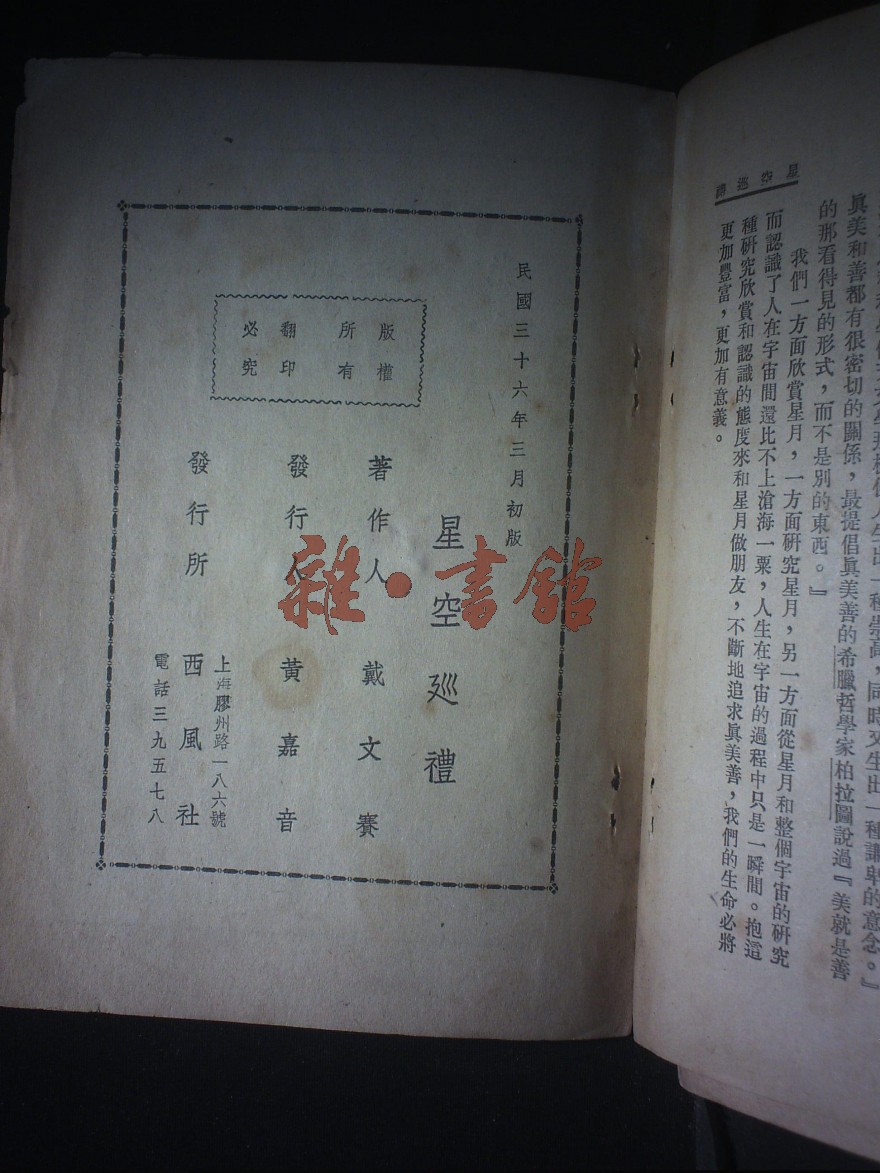 星空巡禮
眞美和善都有很密切的關係，最提倡眞美善的希臘哲學家柏拉圖說過『美就是善
的那看得見的形式，而不是別的東西。』
我們一方面欣賞星月，一方面研究星月，另一方面從星月和整個宇宙的研究
而認識了人在宇宙間還比不上滄海一粟，人生在宇宙的過程中只是一瞬間。抱這
種研究欣賞和認識的態度來和星月做朋友，不斷地追求眞美善，我們的生命必將
更加豐富，更加有意義。
民國三十六年三月初版
星空巡禮
版權
所有
翻印
必究
著作人 戴文賽
發行人 黃嘉音
發行所 西風社
上海膠州路一八六號
電話三九五七八
雜·書館